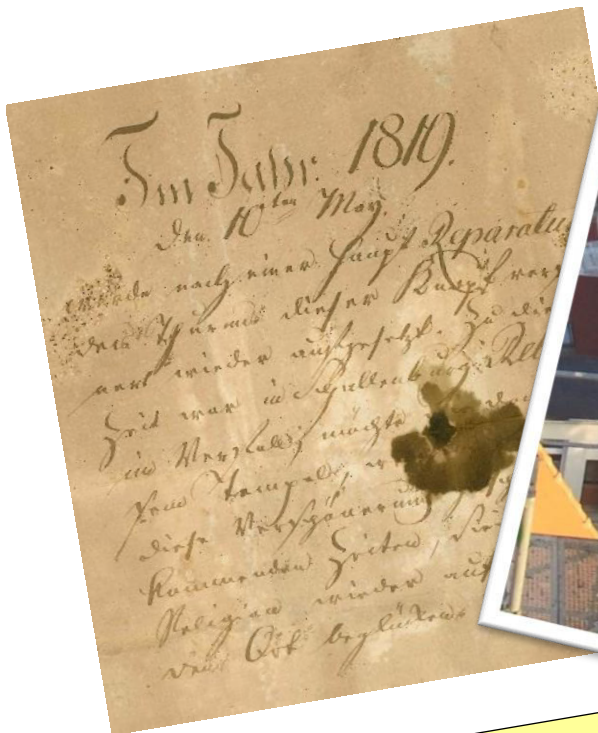 Im Jahr. 1819.
den 10ten May.
wurde nach einer Haupt Reparatu
des Thurms dieser Knopf ver
wieder aufgesetzt. Zu die
Zeit war in Schallenburg Rel
im Verfall, möchte
Tempels,
diese Verschönerung
kommenden Zeiten, die
Religion wieder auf
den Ort beglücken.